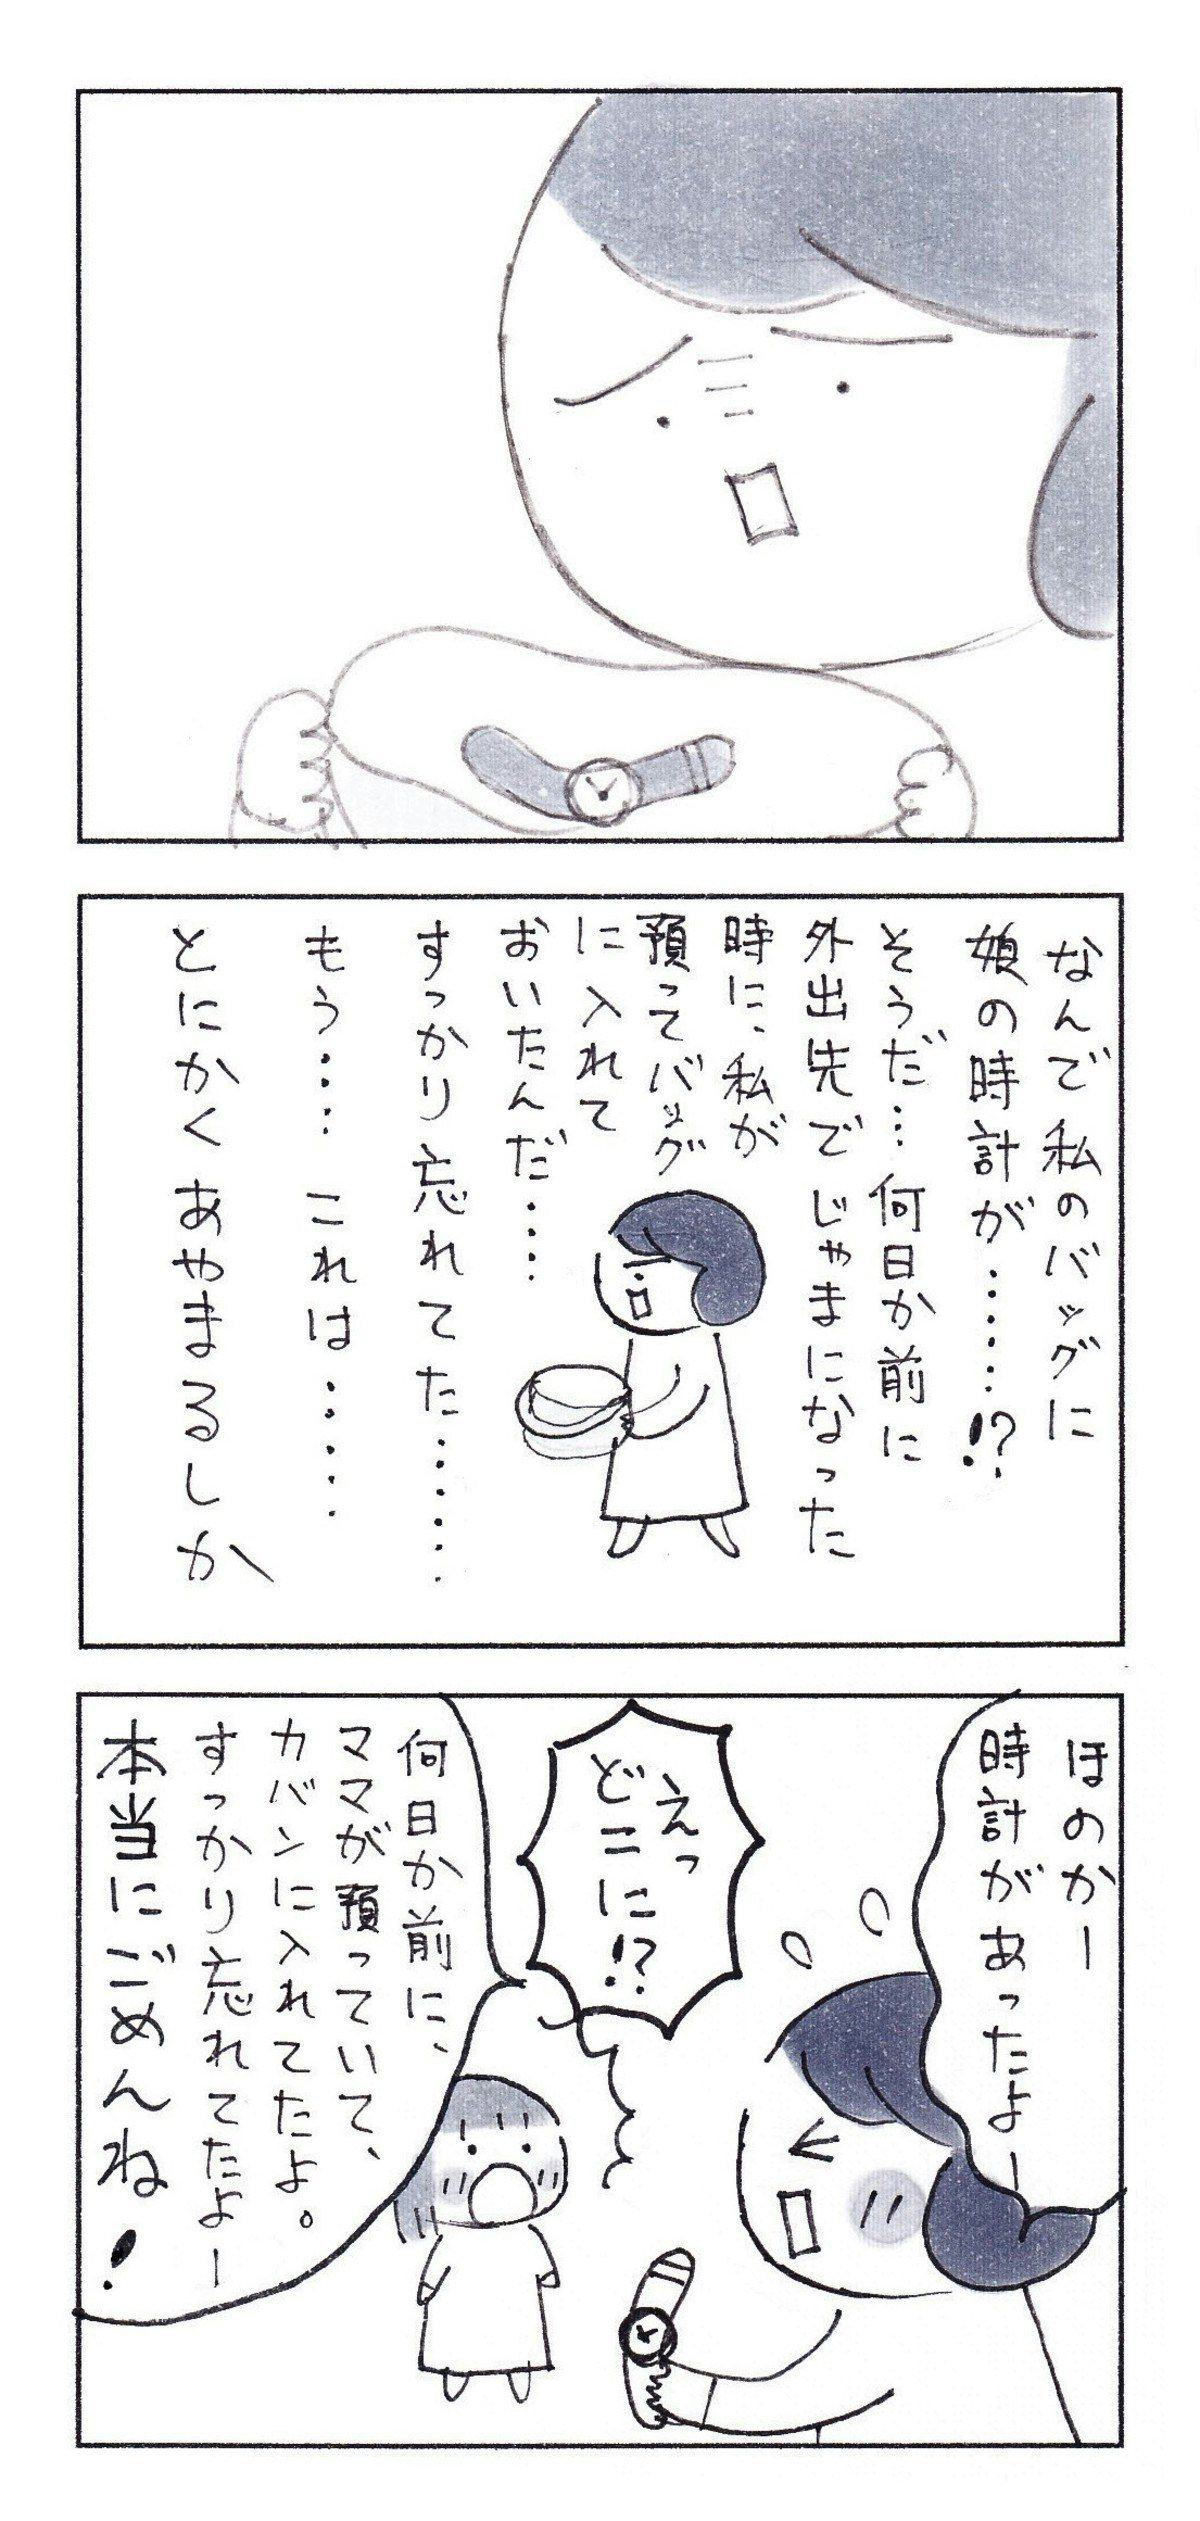 なんで私のバッグに
娘の時計が……!?
そうだ…何日か前に
外出先でじゃまになった
時に、私が
預ってバッグ
に入れて
おいたんだ……
すっかり忘れてた……
もう…… これは……
とにかくあやまるしか
ほのかー
時計があったよー
えっ
どこに!?
何日か前に、
ママが預っていて、
カバンに入れてたよ。
すっかり忘れてたよー
本当にごめんね!